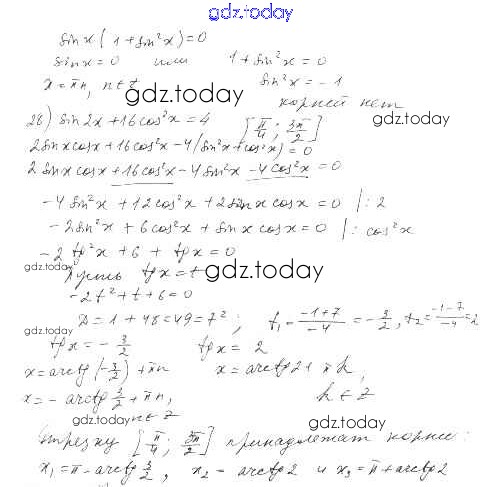 gdz.today
sin x · (1 + sin²x) = 0
sin x = 0 или 1 + sin²x = 0
x = πn, n ∈ Z sin²x = -1
корней нет
gdz.today
gdz.today
26) sin 2x + 16 cos²x = 4 [π/4; 3π/2]
2 sin x cos x + 16 cos²x - 4(sin²x + cos²x) = 0
2 sin x cos x + 16 cos²x - 4 sin²x - 4 cos²x = 0
-4 sin²x + 12 cos²x + 2 sin x cos x = 0 |: 2
-2 sin²x + 6 cos²x + sin x cos x = 0 |: cos²x
-2 tg²x + 6 + tg x = 0
gdz.today
gdz.today
Пусть tg x = t
-2t² + t + 6 = 0
D = 1 + 48 = 49 = 7²; t₁ = (-1+7)/-4 = -3/2, t₂ = (-1-7)/-4 = 2
gdz.today
tg x = -3/2 tg x = 2
x = arctg(-3/2) + πn x = arctg 2 + πk,
x = -arctg 3/2 + πn, k ∈ Z
n ∈ Z
gdz.today
gdz.today
Отрезку [π/4; 3π/2] принадлежат корни:
x₁ = π - arctg 3/2, x₂ - arctg 2 и x₃ = π + arctg 2
gdz.today
gdz.today